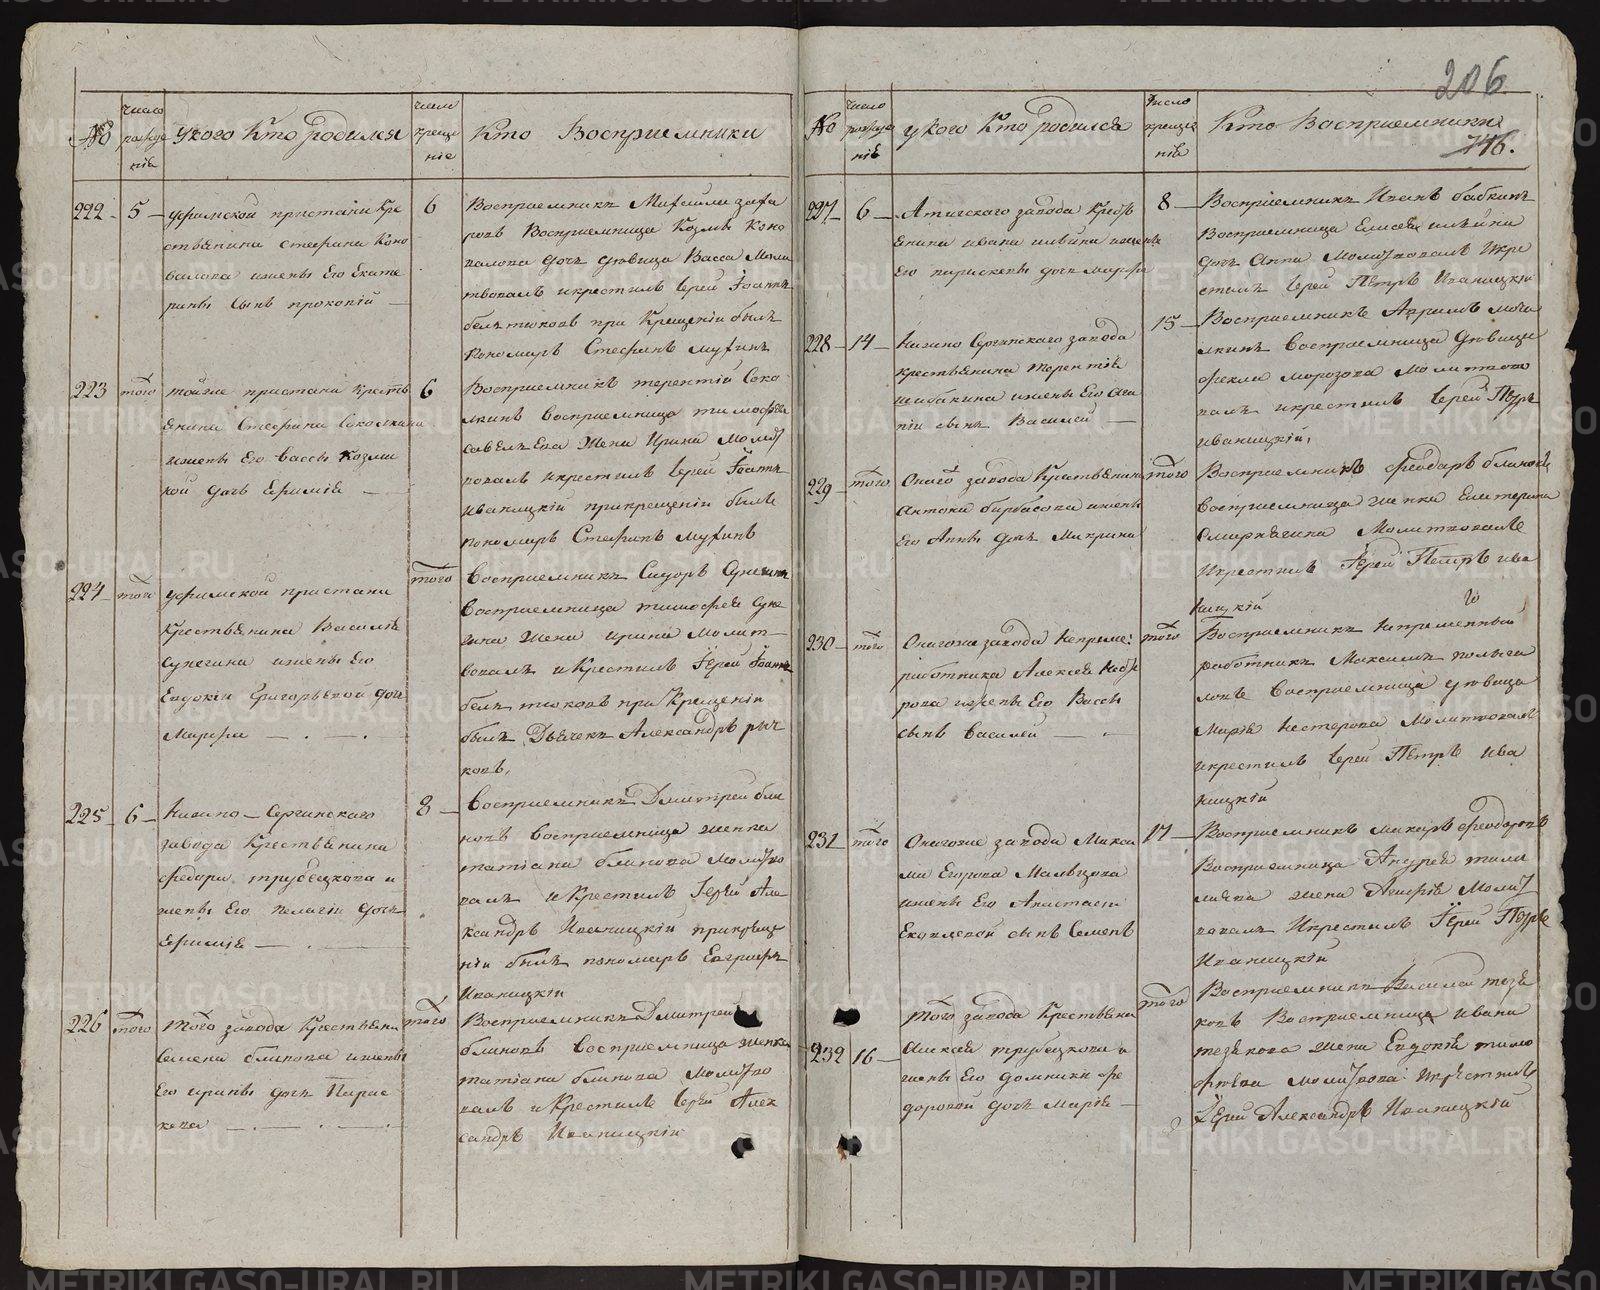 206
746.
№
число рожде нія
у кого Кто родился
число креще нія
Кто Восприемники
222
5
уфимской пристани Кре
стьянина стефана Коно
валова жены Его Екате
рины сынъ прокопій
6
Восприемникъ
ровъ Восприемница Козмы Коно
валова дочь девица Васса Моли
твовалъ и крестилъ Іерей Іоаннъ
при Крещеніи былъ
пономарь Стефанъ
223
того
тойже пристани Кресть
янина Стефана Соколкина
жены Его Вассы Козми
ной дочь Ефимія
6
Восприемникъ терентій Соко
лкинъ Восприемница тимофея
Жена Ирина Молит
вовалъ и крестилъ Іерей Іоаннъ
иваницкій при крещеніи былъ
пономарь Стефанъ
224
той
уфимской пристани
Крестьянина Василія
Сунегина жены Его
Евдокіи Григорьевой дочь
Марфа
того
Восприемникъ Сидоръ Сунегинъ
Восприемница тимофея Суне
гина жена ирина молит
вовалъ и Крестилъ Іерей Іоаннъ
при Крещеніи
былъ Дьячекъ Александръ рыч
ковъ.
225
6
Нижно-Сергинскаго
завода Крестьянина
федора трубецкова и
жены Его пелагіи дочь
Ефимія
8
Восприемникъ Дмитрей бли
новъ Восприемница женка
татіана блинова молитво
валъ и Крестилъ Іерей Але
ксандръ Иваницкій при креще
ніи былъ пономарь Евграфъ
Иваницкій
226
того
Того завода Крестьяни
Семена блинова жены
Его ирины дочь Парас
кева
того
Восприемникъ Дмитрей
блиновъ Восприемница женка
татіана блинова молитво
валъ и Крестилъ Іерей Алек
сандръ Иваницкій
№
число рожде нія
у кого Кто родился
число креще нія
Кто Восприемники
227
6
Атигскаго завода Кресть
янина ивана ильина жены
Его параскевы дочь марфа
8
Восприемникъ Иванъ бабкинъ
Восприемница Елисея ильина
дочь Анна Молитвовалъ и кре
стилъ Іерей Петръ Иваницкій
228
14
Нижно Сергинскаго завода
крестьянина терентія
шибакина жены Его Ага
піи сынъ Василей
15
Восприемникъ
Восприемница девица
фекла морозова молитво
валъ и крестилъ Іерей Петръ
иваницкій.
229
того
Онаго завода Крестьянина
Антона барбасова жены
Его Анны дочь Макрина
того
Восприемникъ феодоръ блиновъ
Восприемница женка Екатерина
Смирнягина Молитвовалъ
и крестилъ Іерей Петръ ива
ницкій
230
того
Онагожа завода Непреме:
работника Алексея
рова жены Его Вассы
сынъ Василей
того
Восприемникъ Непременный
работникъ Максимъ
ловъ Восприемница девица
Марія Нестерова Молитвовалъ
и крестилъ Іерей Петръ Ива
ницкій
231
того
Онагоже завода Макси
ма Егорова Мальцова
жены Его Анастасіи
Яковлевой сынъ Семенъ
17
Восприемникъ макаръ феодоровъ
Восприемница Андрея
жена Агафія Молит
вовалъ и крестилъ Іерей Петръ
Иваницкій
232
16
Того завода Крестьяни
Алексея трубецкова и
жены Его домники фе
доровой дочь Марія
того
Восприемникъ Василей тезя
ковъ Восприемница ивана
тезякова жена Евдокія тимо
феева молитвова: и крестилъ
Іерей Александръ Иваницкій